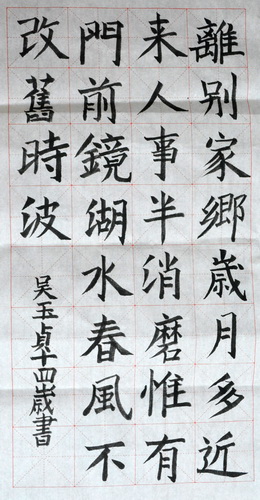 離别家鄉歲月多近
来人事半消磨惟有
門前鏡湖水春風不
改舊時波
吴玉貞十四歲書